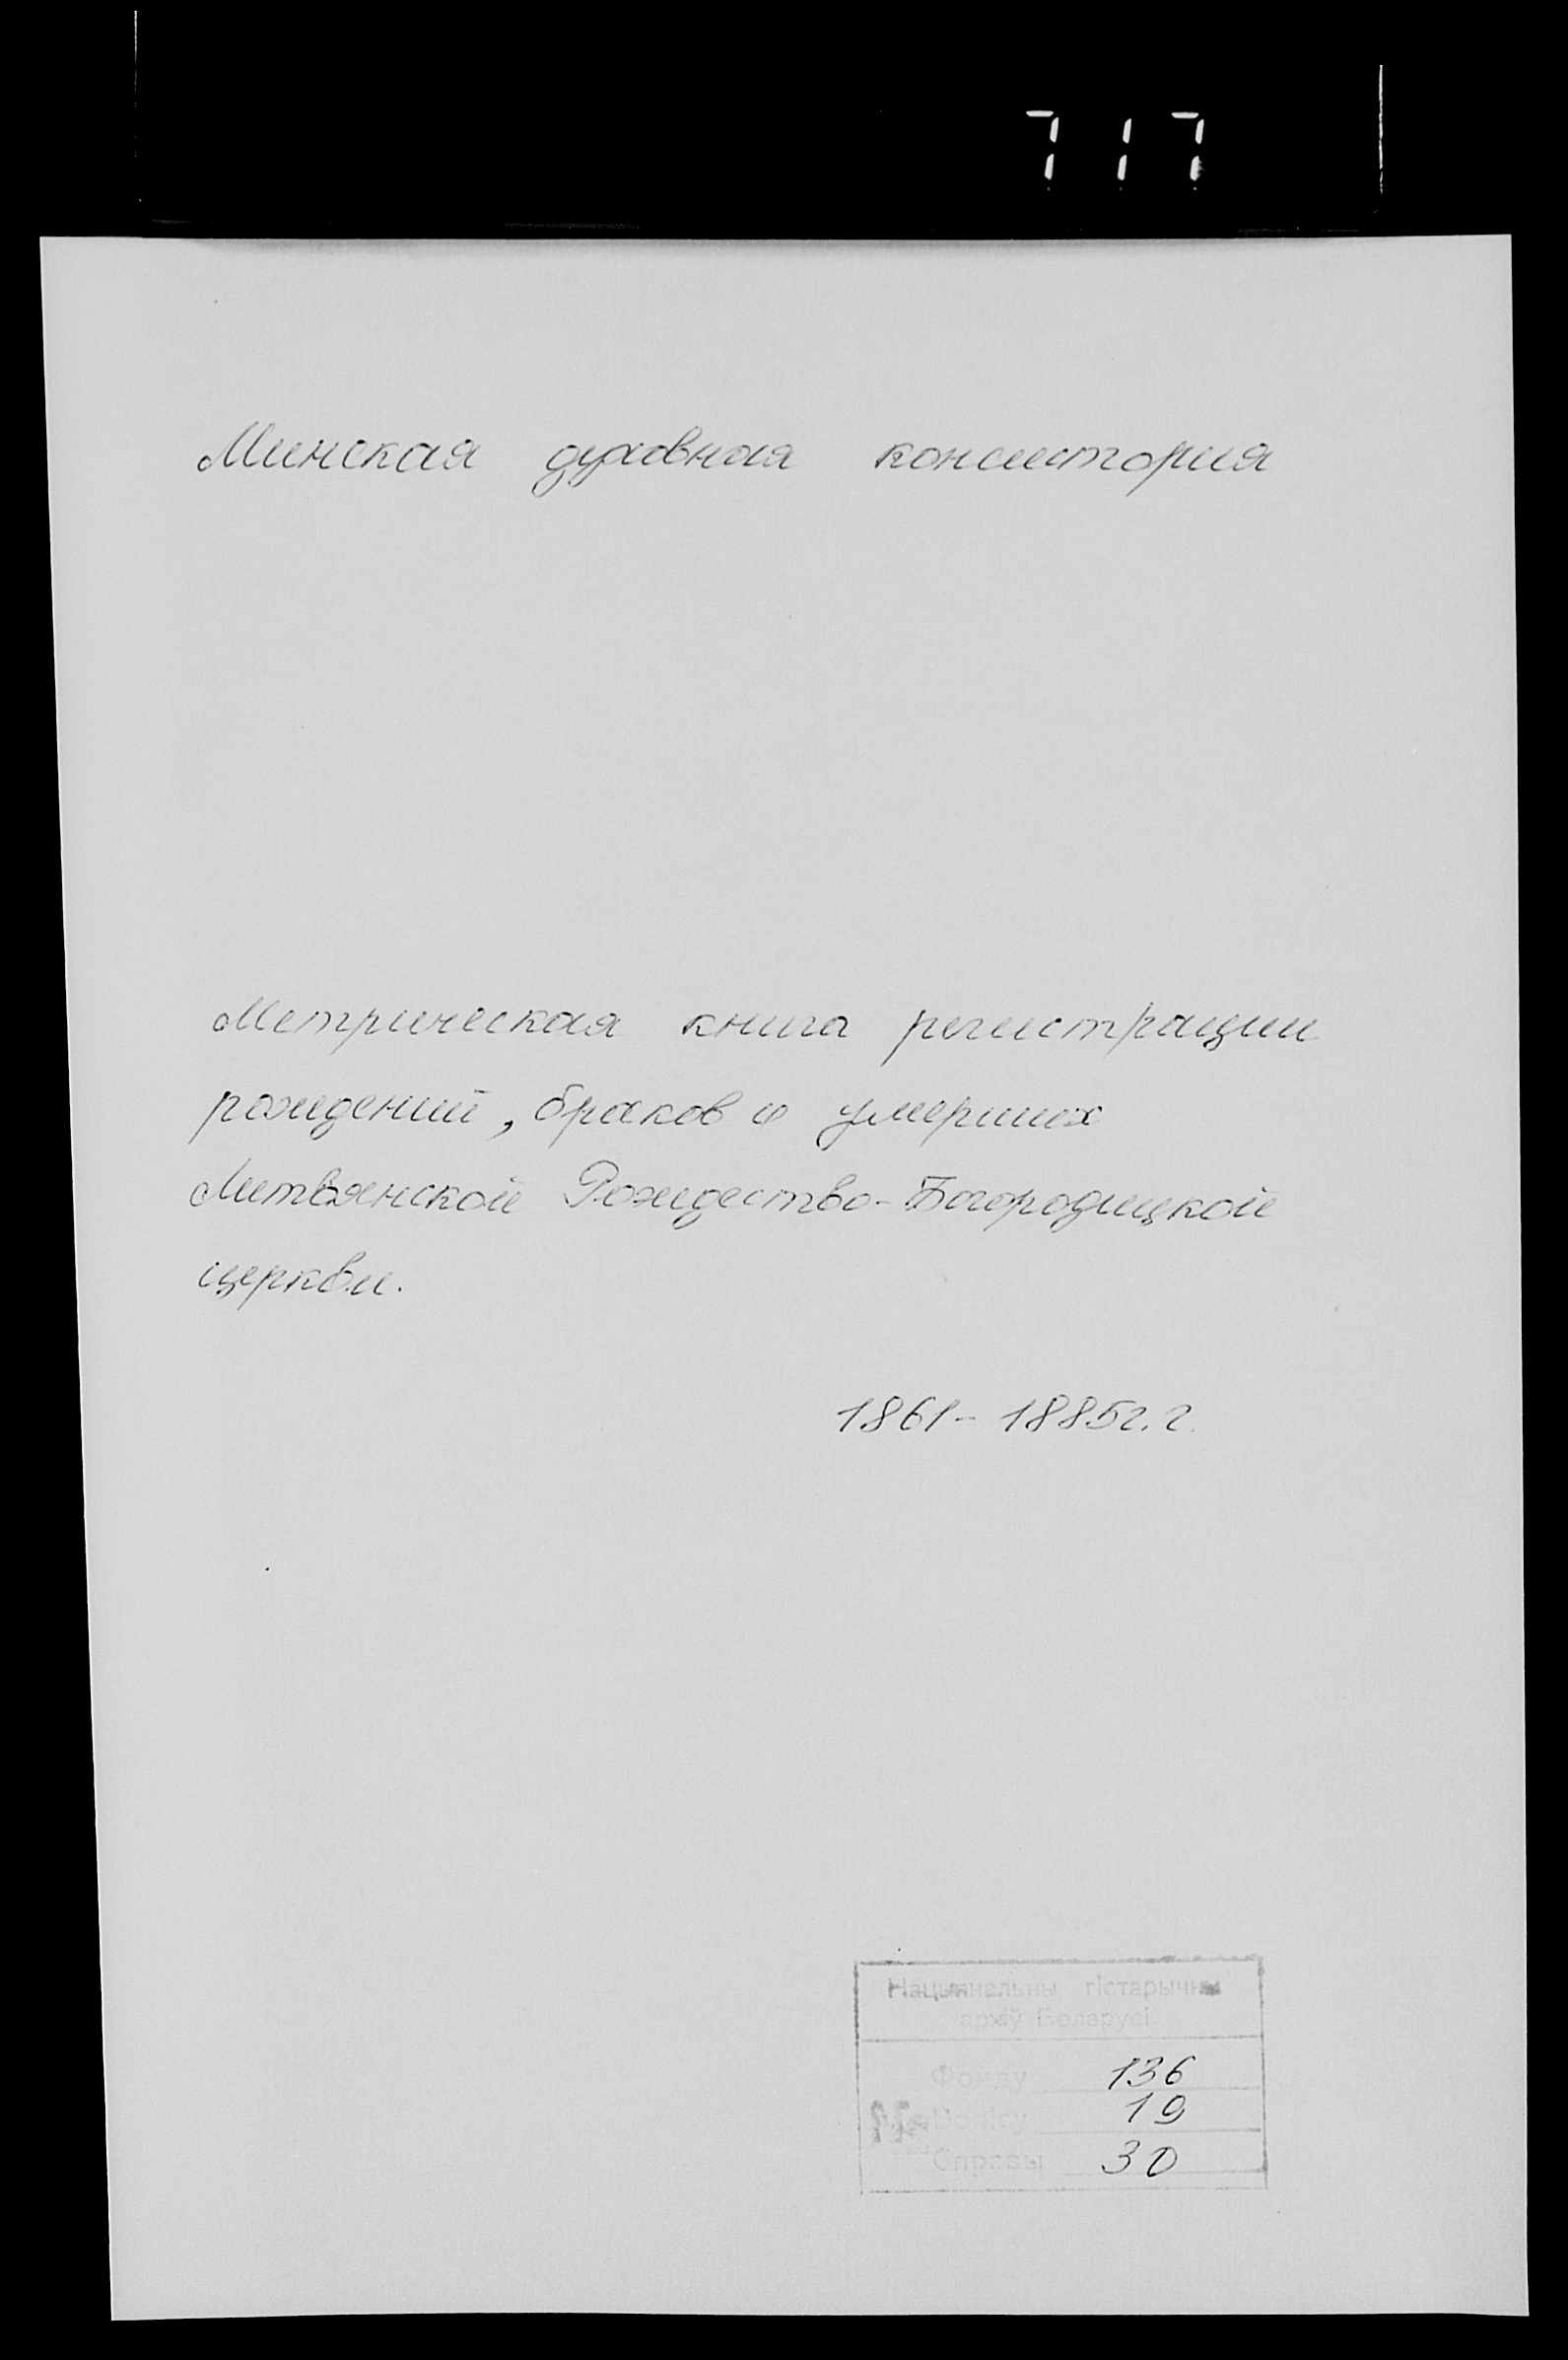 717
Минская духовная консистория
Метрическая книга регистрации
рождений, браков и умерших
Литвянской Рождество-Богородицкой
церкви.
1861-1885г.г.
Нацыянальны гістарычны
архіў Беларусі
Фонду 136
Вопісу 19
Справы 30